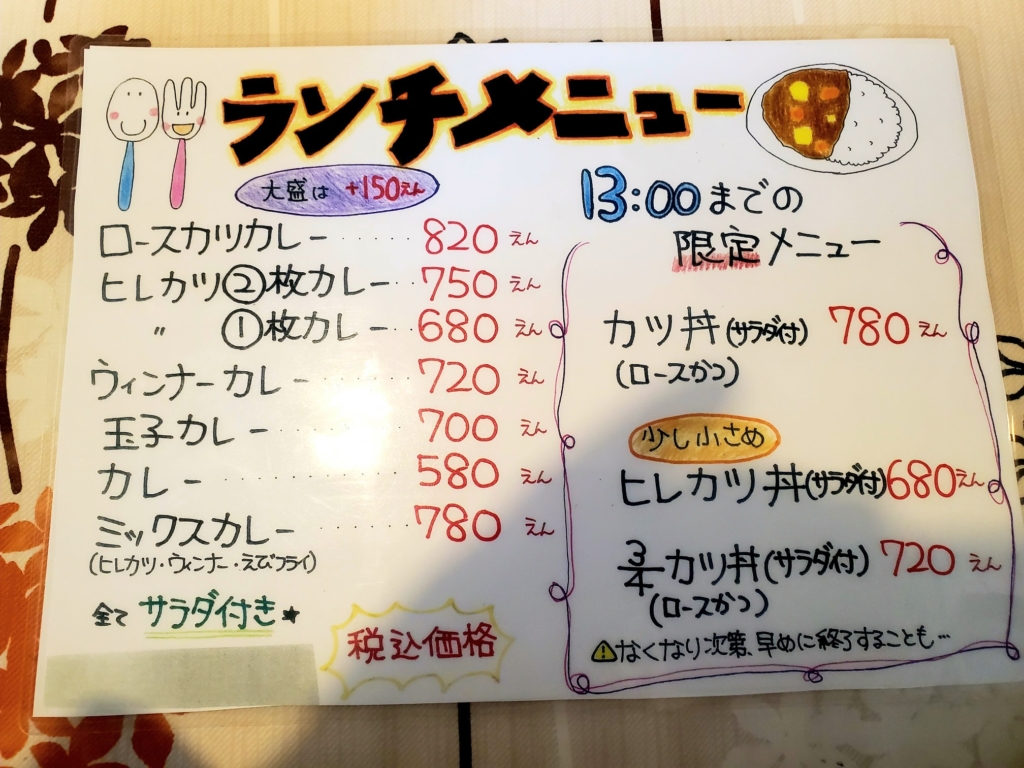 ランチメニュー
大盛は +150えん
ロースカツカレー ······ 820 えん
ヒレカツ②枚カレー ··· 750 えん
〃 ①枚カレー ··· 680 えん
ウィンナーカレー ········ 720 えん
玉子カレー ·········· 700 えん
カレー ············ 580 えん
ミックスカレー ········ 780 えん
(ヒレカツ・ウィンナー・えびフライ)
全て サラダ付き★
税込価格
13:00までの
限定メニュー
カツ丼(サラダ付) 780 えん
(ロースかつ)
少し小さめ
ヒレカツ丼(サラダ付) 680えん
3/4カツ丼(サラダ付) 720 えん
(ロースかつ)
⚠なくなり次第、早めに終了することも…